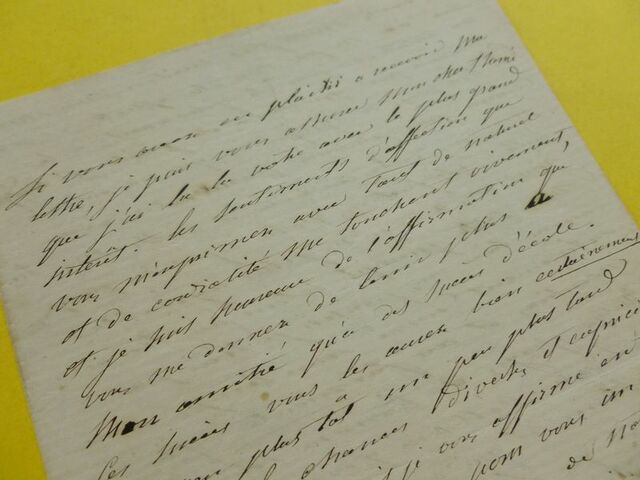 Si vous avez eu plaisir a recevoir ma
lettre, je puis vous assurer mon cher Rémi
que j'ai lu la votre avec le plus grand
intérêt. Les sentiments d'affection que
vous m'exprimez avec tant de naturel
et de cordialité me touchent vivement,
et je suis heureux de l'affirmation que
vous me donnez de tenir plus a
mon amitié qu'a des succès d'école.
Ces succès vous les aurez bien certainement
un peu plus tard
plus tot
chances diverses et
je vous affirme
pour vous
de